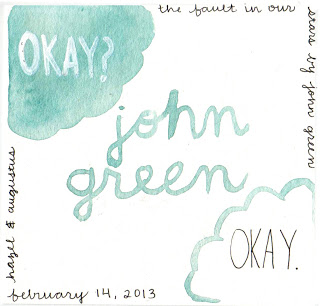 the fault in our
stars by john green
OKAY?
john
green
hazel & augustus
OKAY.
february 14, 2013